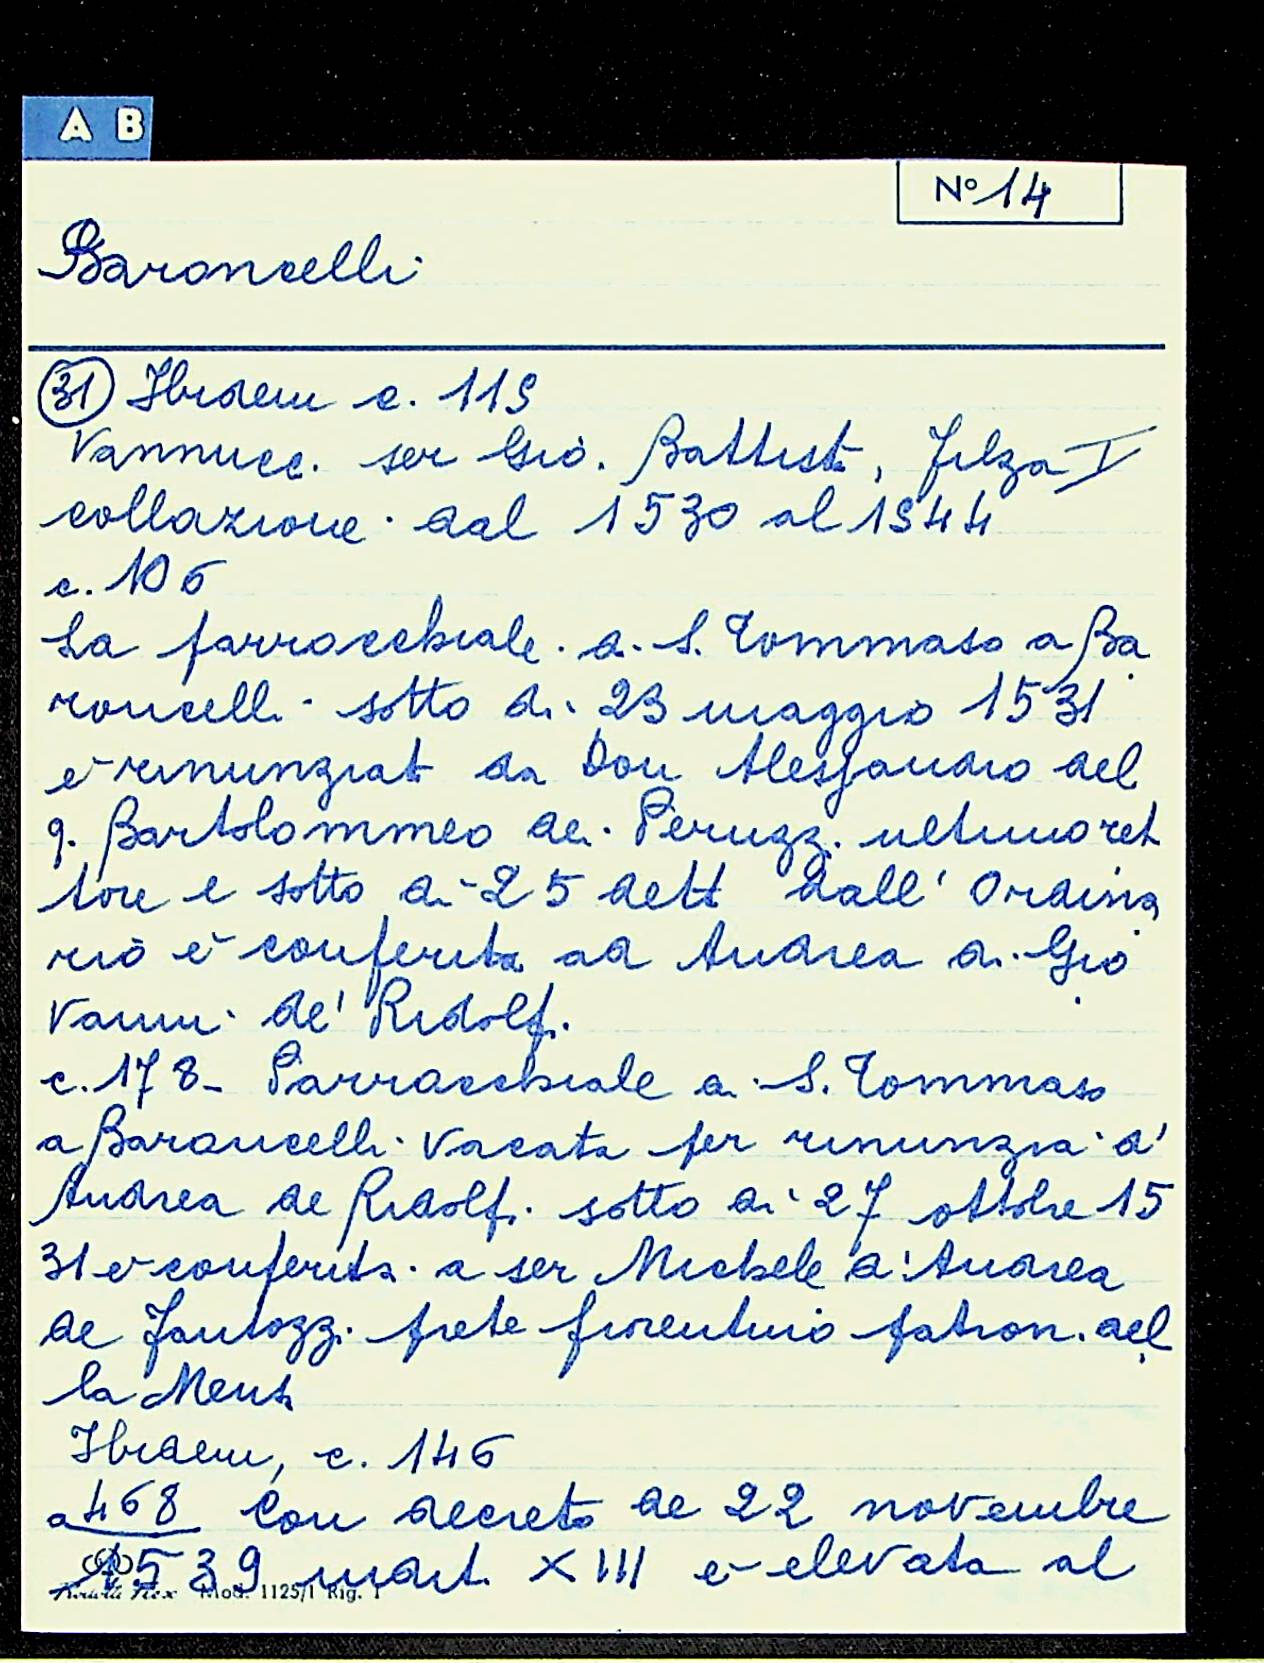 A B
N° 14
Baroncelli
31 Ibidem c. 119
Vannucc. ser Gio. Battist, Filza I
collazione dal 1530 al 1544
c. 106
La parrocchiale di S. Tommaso a Ba
roncelli sotto dì 23 maggio 1531
è rinunziat da Don Alessandro del
q. Bartolommeo de' Peruzzi ultimo ret
tore e sotto dì 25 dett dall' Ordina
rio è conferita ad Andrea di Gio
vanni de' Ridolfi.
c. 178 - Parrocchiale di S. Tommaso
a Baroncelli vacata per rinunzia d'
Andrea de Ridolfi sotto dì 27 ottobre 15
31 è conferita a ser Michele d'Andrea
de Fantozzi prete fiorentino patron. del
la Mensa
Ibidem, c. 146
a 468 Con decreto de 22 novembre
1539 mart. XIII è elevata al
Mod. 1125/1 Rig. 1